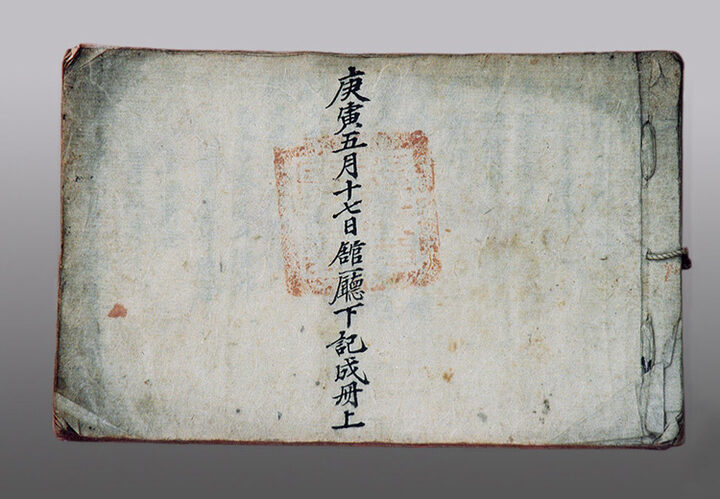 庚寅五月十七日舘廳下記成册上